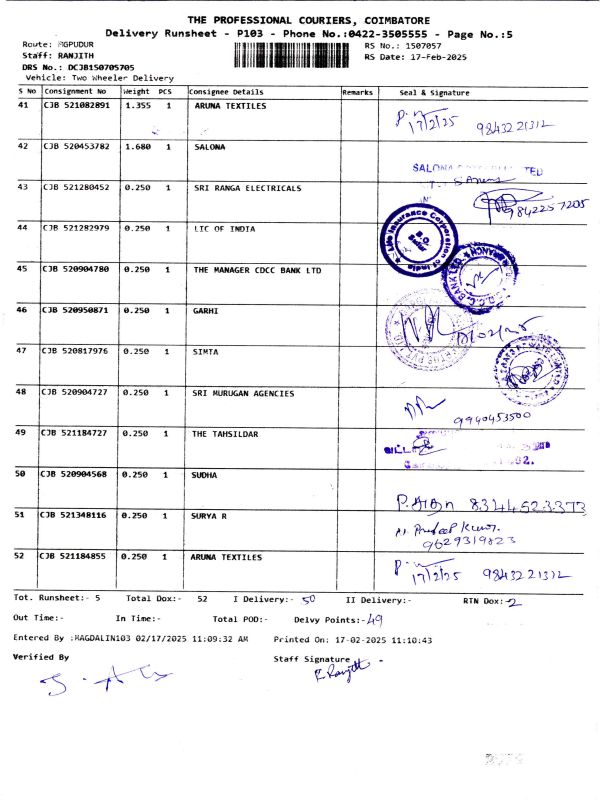 THE PROFESSIONAL COURIERS, COIMBATORE
Delivery Runsheet - P103 - Phone No.:0422-3505555 - Page No.:5
Route: PGPUDUR
RS No.: 1507057
Staff: RANJITH
RS Date: 17-Feb-2025
DRS No.: DCJB150705705
Vehicle: Two Wheeler Delivery
S No Consignment No Weight PCS Consignee Details Remarks Seal & Signature
41 CJB 521082891 1.355 1 ARUNA TEXTILES
17/2/25 9843221312
42 CJB 520453782 1.680 1 SALONA
SALONA TED
43 CJB 521280452 0.250 1 SRI RANGA ELECTRICALS
9842257205
44 CJB 521282979 0.250 1 LIC OF INDIA
Life Insurance Corporation of India
45 CJB 520904780 0.250 1 THE MANAGER CDCC BANK LTD
BANK LTD BRANCH
46 CJB 520950871 0.250 1 GARHI
47 CJB 520817976 0.250 1 SIMTA
48 CJB 520904727 0.250 1 SRI MURUGAN AGENCIES
9940453500
49 CJB 521184727 0.250 1 THE TAHSILDAR
50 CJB 520904568 0.250 1 SUDHA
8344523373
51 CJB 521348116 0.250 1 SURYA R
9629319823
52 CJB 521184855 0.250 1 ARUNA TEXTILES
17/2/25 9843221312
Tot. Runsheet:- 5 Total Dox:- 52 I Delivery:- 50 II Delivery:- RTN Dox:- 2
Out Time:- In Time:- Total POD:- Delvy Points:- 49
Entered By :RAGDALIN103 02/17/2025 11:09:32 AM Printed On: 17-02-2025 11:10:43
Verified By
Staff Signature
R. Ranjith